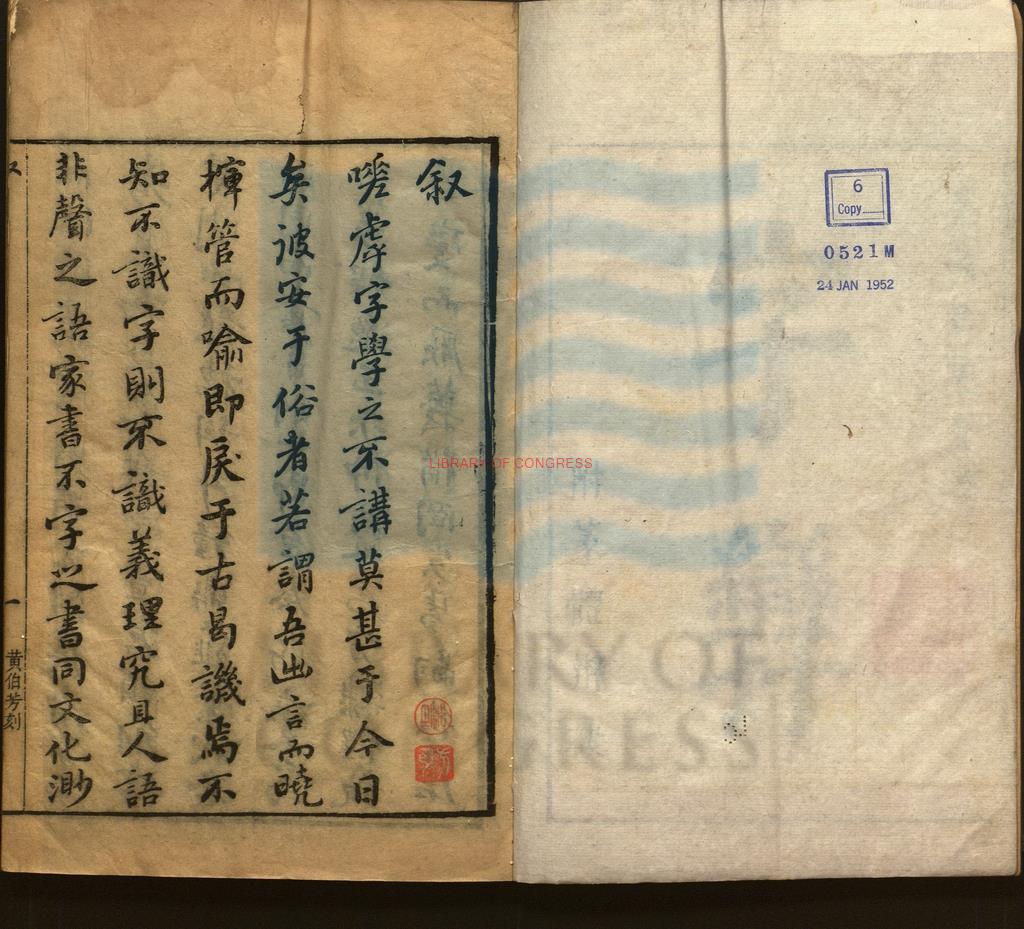 叙
嘆虖字學之不講莫甚于今日
矣彼安于俗者若謂吾出言而曉
揮管而喻即戾于古曷譏焉不
知不識字則不識義理究且人語
非聲之語家書不字之書同文化渺
一
黄伯芳刻
LIBRARY OF CONGRESS
6
Copy
0521M
24 JAN 1952